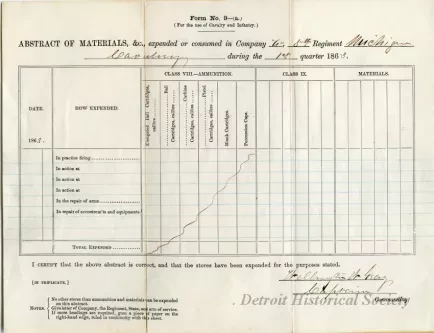 Form No. 9—(a.)
(For the use of Cavalry and Infantry.)
ABSTRACT OF MATERIALS, &c., expended or consumed in Company 5th Regiment Michigan
Cavalry during the 1st quarter 1863.
CLASS VIII.—AMMUNITION. CLASS IX. MATERIALS.
DATE. HOW EXPENDED.
Ball Cartridges, calibre
Carbine Cartridges, calibre
Pistol Cartridges, calibre
Blank Cartridges.
Percussion Caps.
1863.
In practice firing
In action at
In action at
In action at
In the repair of arms
In repair of accoutrements and equipments
TOTAL EXPENDED
I CERTIFY that the above abstract is correct, and that the stores have been expended for the purposes stated.
[IN DUPLICATE.]
Commanding
NOTES.
No other stores than ammunition and materials can be expended on this abstract.
Give letter of Company, the Regiment, State, and arm of service.
If more headings are required, gum a piece of paper on the right-hand edge, ruled in conformity with this sheet.
Detroit Historical Society